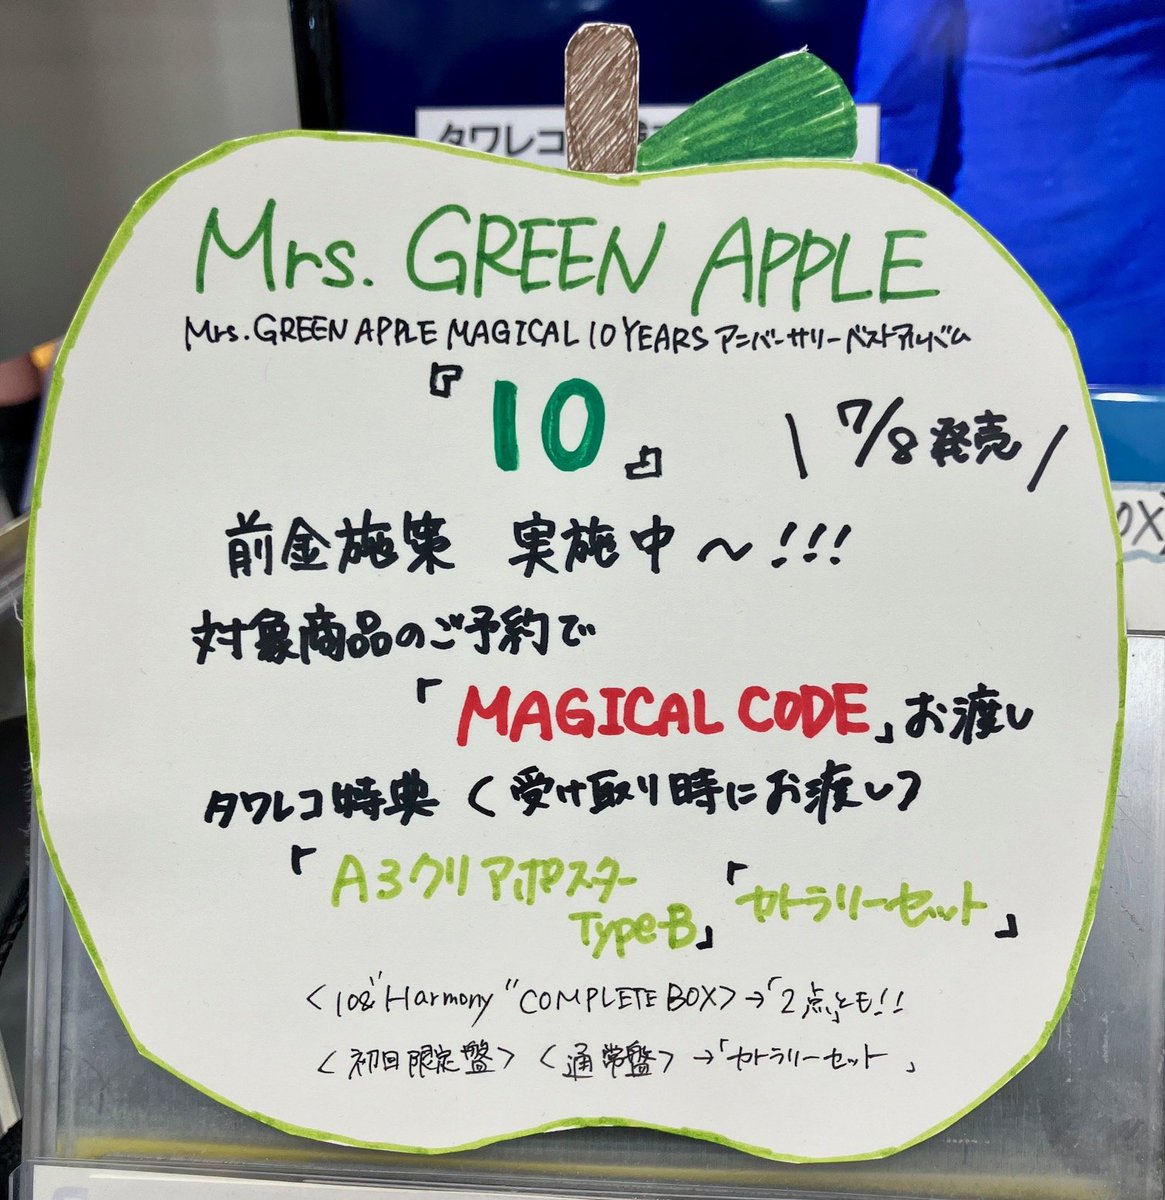 タワレコ
Mrs. GREEN APPLE
Mrs. GREEN APPLE MAGICAL 10 YEARS アニバーサリーベストアルバム
『10』
\ 7/8発売 /
前金施策 実施中～!!!
対象商品のご予約で
「MAGICAL CODE」お渡し
タワレコ特典 〈受け取り時にお渡し〉
「A3クリアポスター
Type-B」
「カトラリーセット」
〈108"Harmony "COMPLETE BOX〉→「2点」とも!!
〈初回限定盤〉〈通常盤〉→「カトラリーセット」
OX